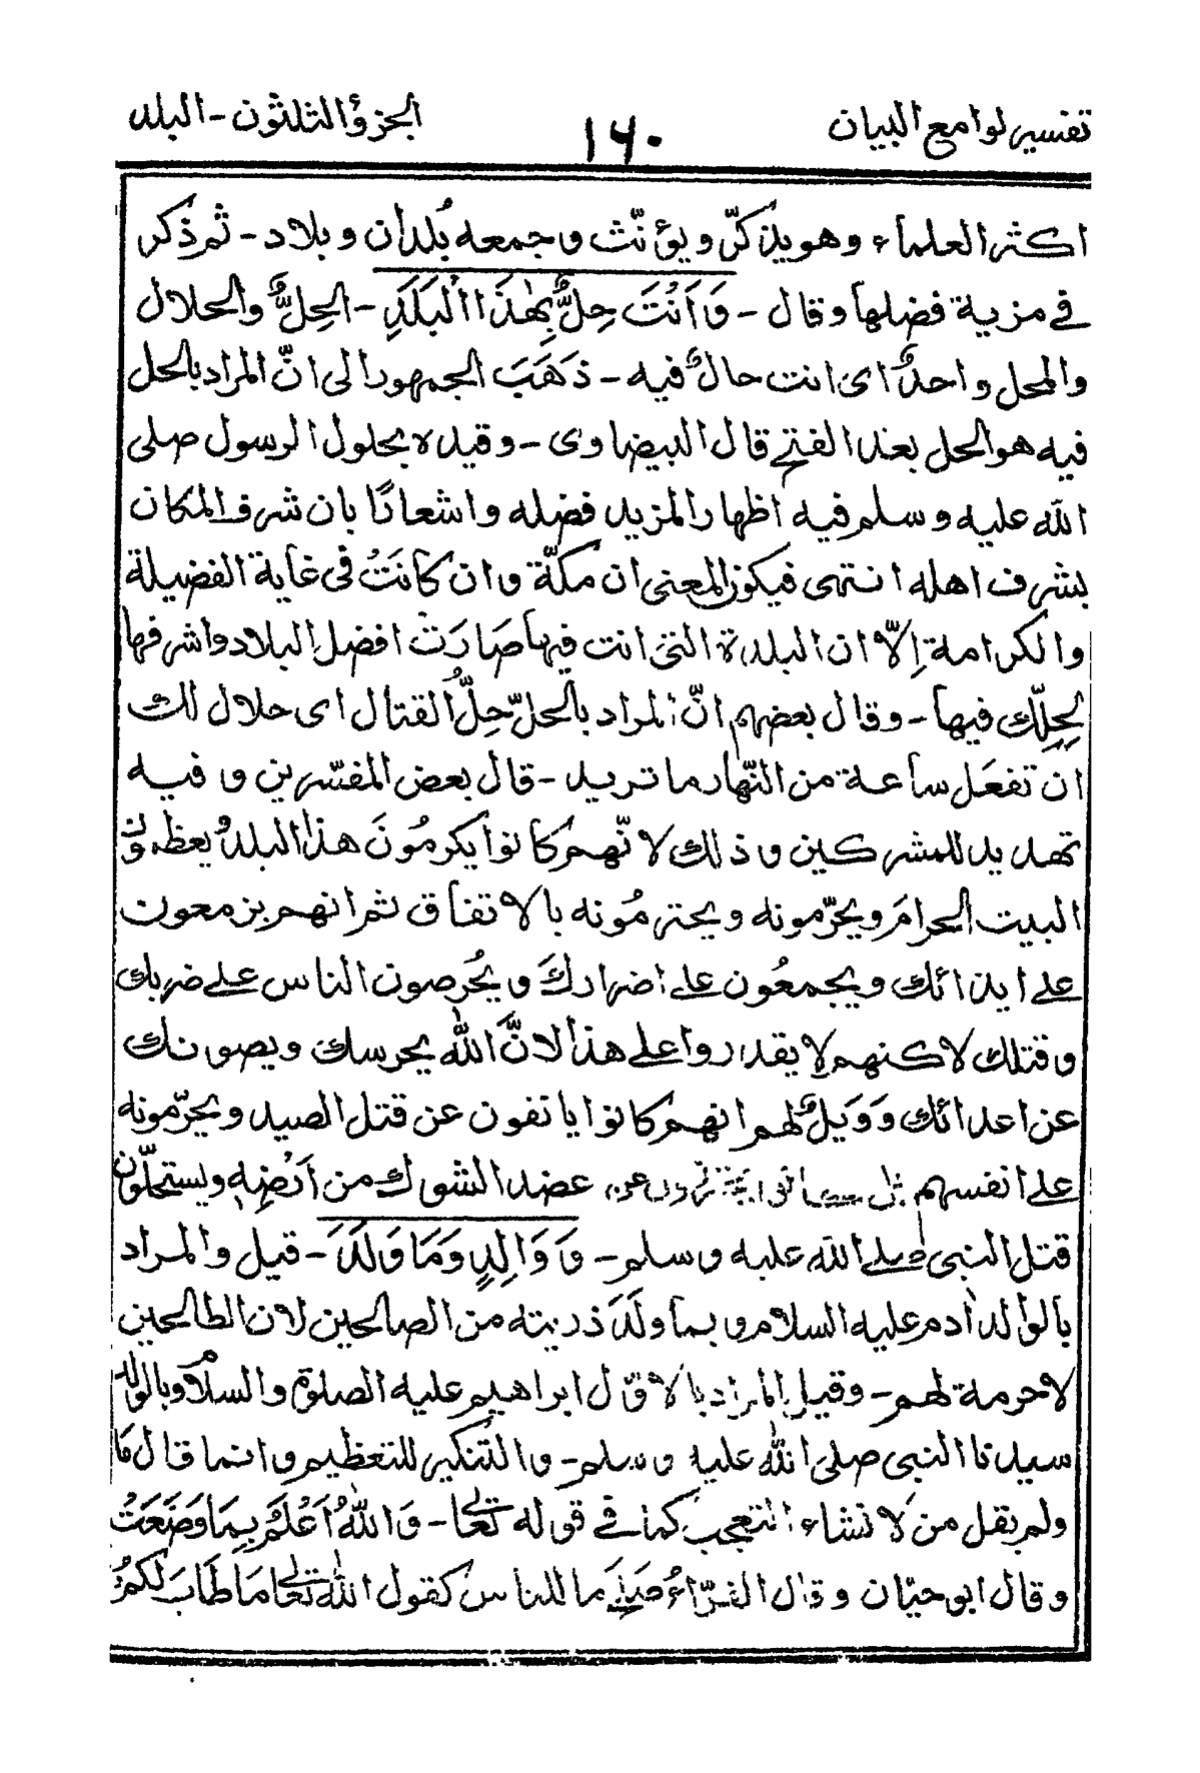 تفسير لوامع البيان
١٦٠
الجزؤ الثلثون - البلد
اكثر العلماء وهو يذكّر ويؤنّث وجمعه بُلدان وبلاد - ثم ذكر
في مزية فضلها وقال - وَاَنْتَ حِلٌّ بِهٰذَا الْبَلَدِ - الحِلُّ والحلال
والمحل واحدٌ اى انت حالٌ فيه - ذهَبَ الجمهور الى انّ المراد بالحل
فيه هو الحل بعد الفتح قال البيضاوى - وقيده بحلول الرسول صلى
الله عليه وسلم فيه اظهار المزيد فضله واشعارًا بان شرف المكان
بشرف اهله انتهى فيكون المعنى ان مكّة وان كانَتْ فى غاية الفضيلة
والكرامة اِلّا ان البلدة التى انت فيها صارَتْ افضل البلاد واشرفها
لِحِلِّك فيها - وقال بعضهم انّ المراد بالحلّ حِلُّ القتال اى حلال لك
ان تفعَل ساعة من النّهار ما تريد - قال بعض المفسّرين وفيه
تهديد للمشركين وذلك لانّهم كانوا يكرمُونَ هذا البلد ويعظمون
البيت الحرامَ ويحرّمونه ويحترمُونه بالاتفاق ثم انهم يزمعون
على ايذائك ويجمعُون على اضرارك ويُحرصون الناس على ضربك
وقتلك لاكنهم لا يقدروا على هذا لانّ الله يحرسك ويصونك
عن اعدائك وَوَيلٌ لهم انهم كانوا يانفون عن قتل الصيد ويحرّمونه
على انفسهم عضد الشوك من اَرْضِه ويستحلّون
قتل النبى صلى الله عليه وسلم - وَوَالِدٍ وَمَا وَلَدَ - قيل والمراد
بالوالد اٰدم عليه السلام وبما ولَدَ ذريته من الصالحين لان الطالحين
لاحرمة لهم - وقيل المراد بالاوّل ابراهيم عليه الصلوة والسلام وبالولد
سيدنا النبى صلى الله عليه وسلم - والتنكير للتعظيم وانما قال مَا
ولم يقل من لانشاء التعجب كما في قوله تعالى - وَاللهُ اَعْلَمُ بِمَا وَضَعَتْ
وقال ابو حيّان وقال الفرّاءُ صَلحَ ما للناس كقول الله تعالى مَا طَابَ لكُمْ